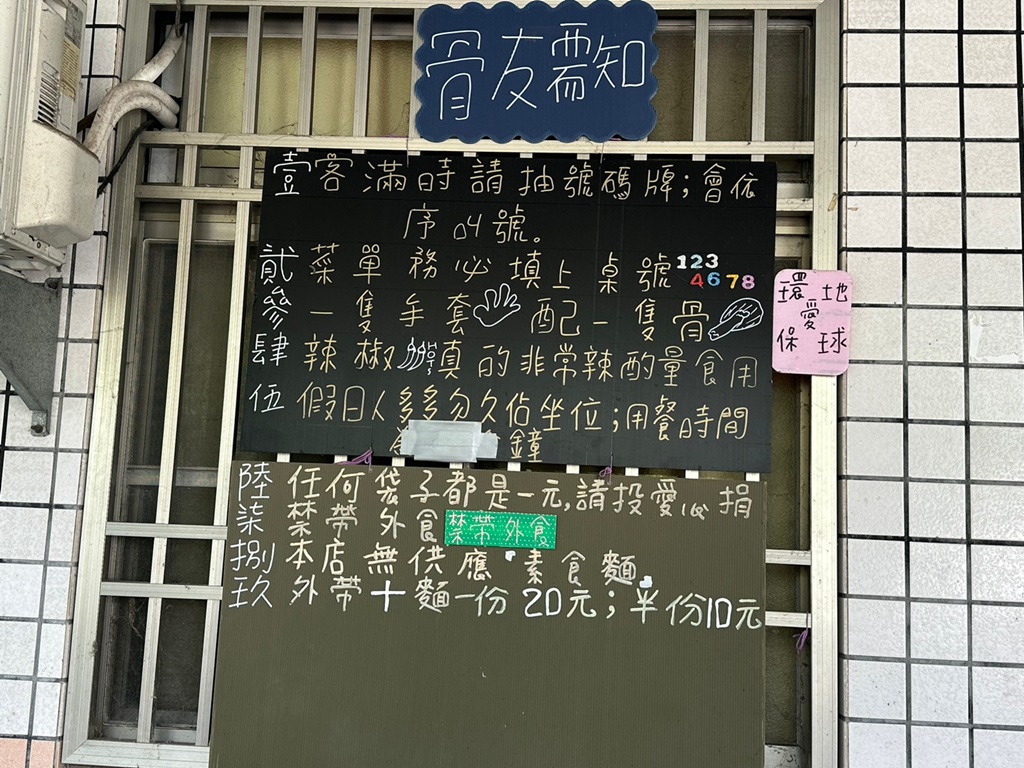 骨友需知
壹客滿時請抽號碼牌;會依
序叫號。
貳菜單務必填上桌號123
4678
參一隻手套配一隻骨
肆辣椒真的非常辣酌量食用
伍假日人多多勿久佔坐位;用餐時間
鐘
陸任何袋子都是一元,請投愛心捐
柒禁帶外食禁帶外食
捌本店無供應素食麵
玖外帶+麵一份20元;半份10元
環地
愛
保球